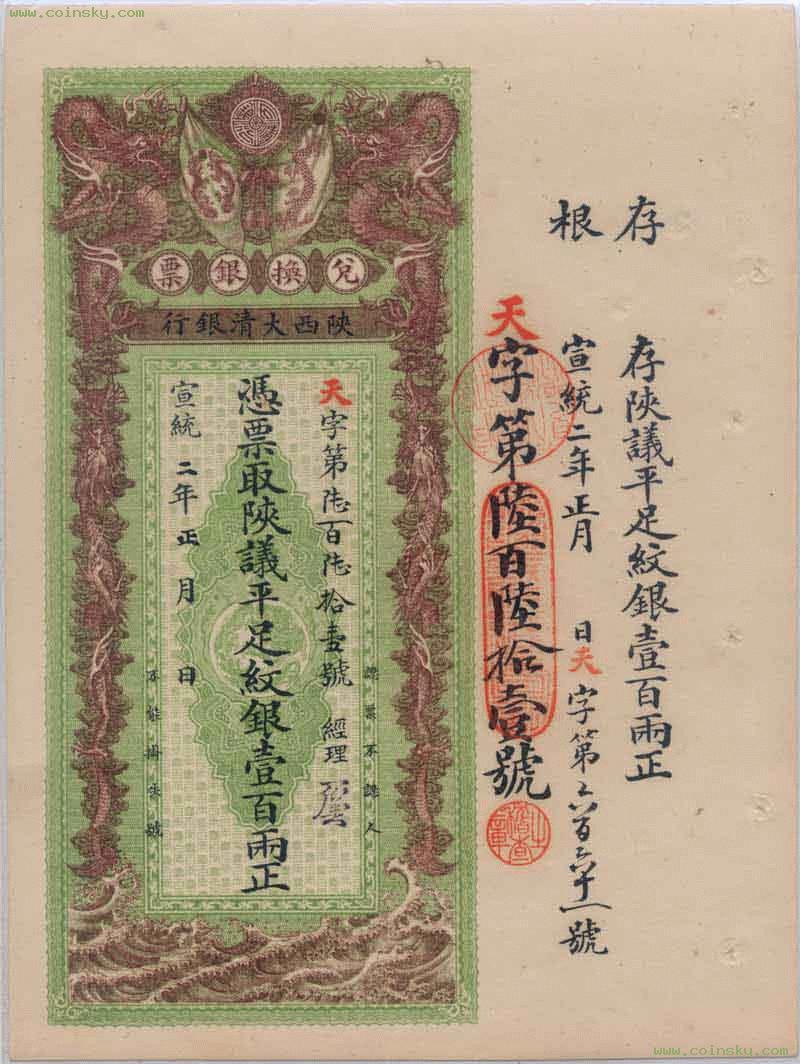 www.coinsky.com
存根
存陝議平足紋銀壹百兩正
宣統二年正月 日天字第六百六十一號
天字第陸百陸拾壹號
兌換銀票
陝西大清銀行
認票不認人
天字第陸百陸拾壹號 經理
憑票取陝議平足紋銀壹百兩正
宣統二年正月 日
不能掛失號
www.coinsky.com